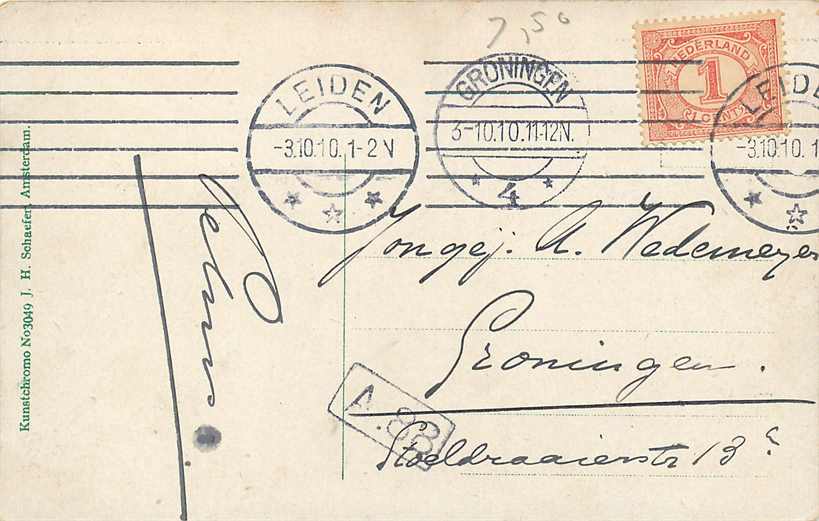 7,50
NEDERLAND
1
CENT
LEIDEN
-3.10.10. 1-2 N
GRONINGEN
3-10.10.11-12N.
4
LEIDE
-3.10.10. 1
Jongej. A. Wedemeyer
Groningen.
Stoeldraaierstr 13a
A.83
Kunstchromo No 3049 J. H. Schaefer, Amsterdam.